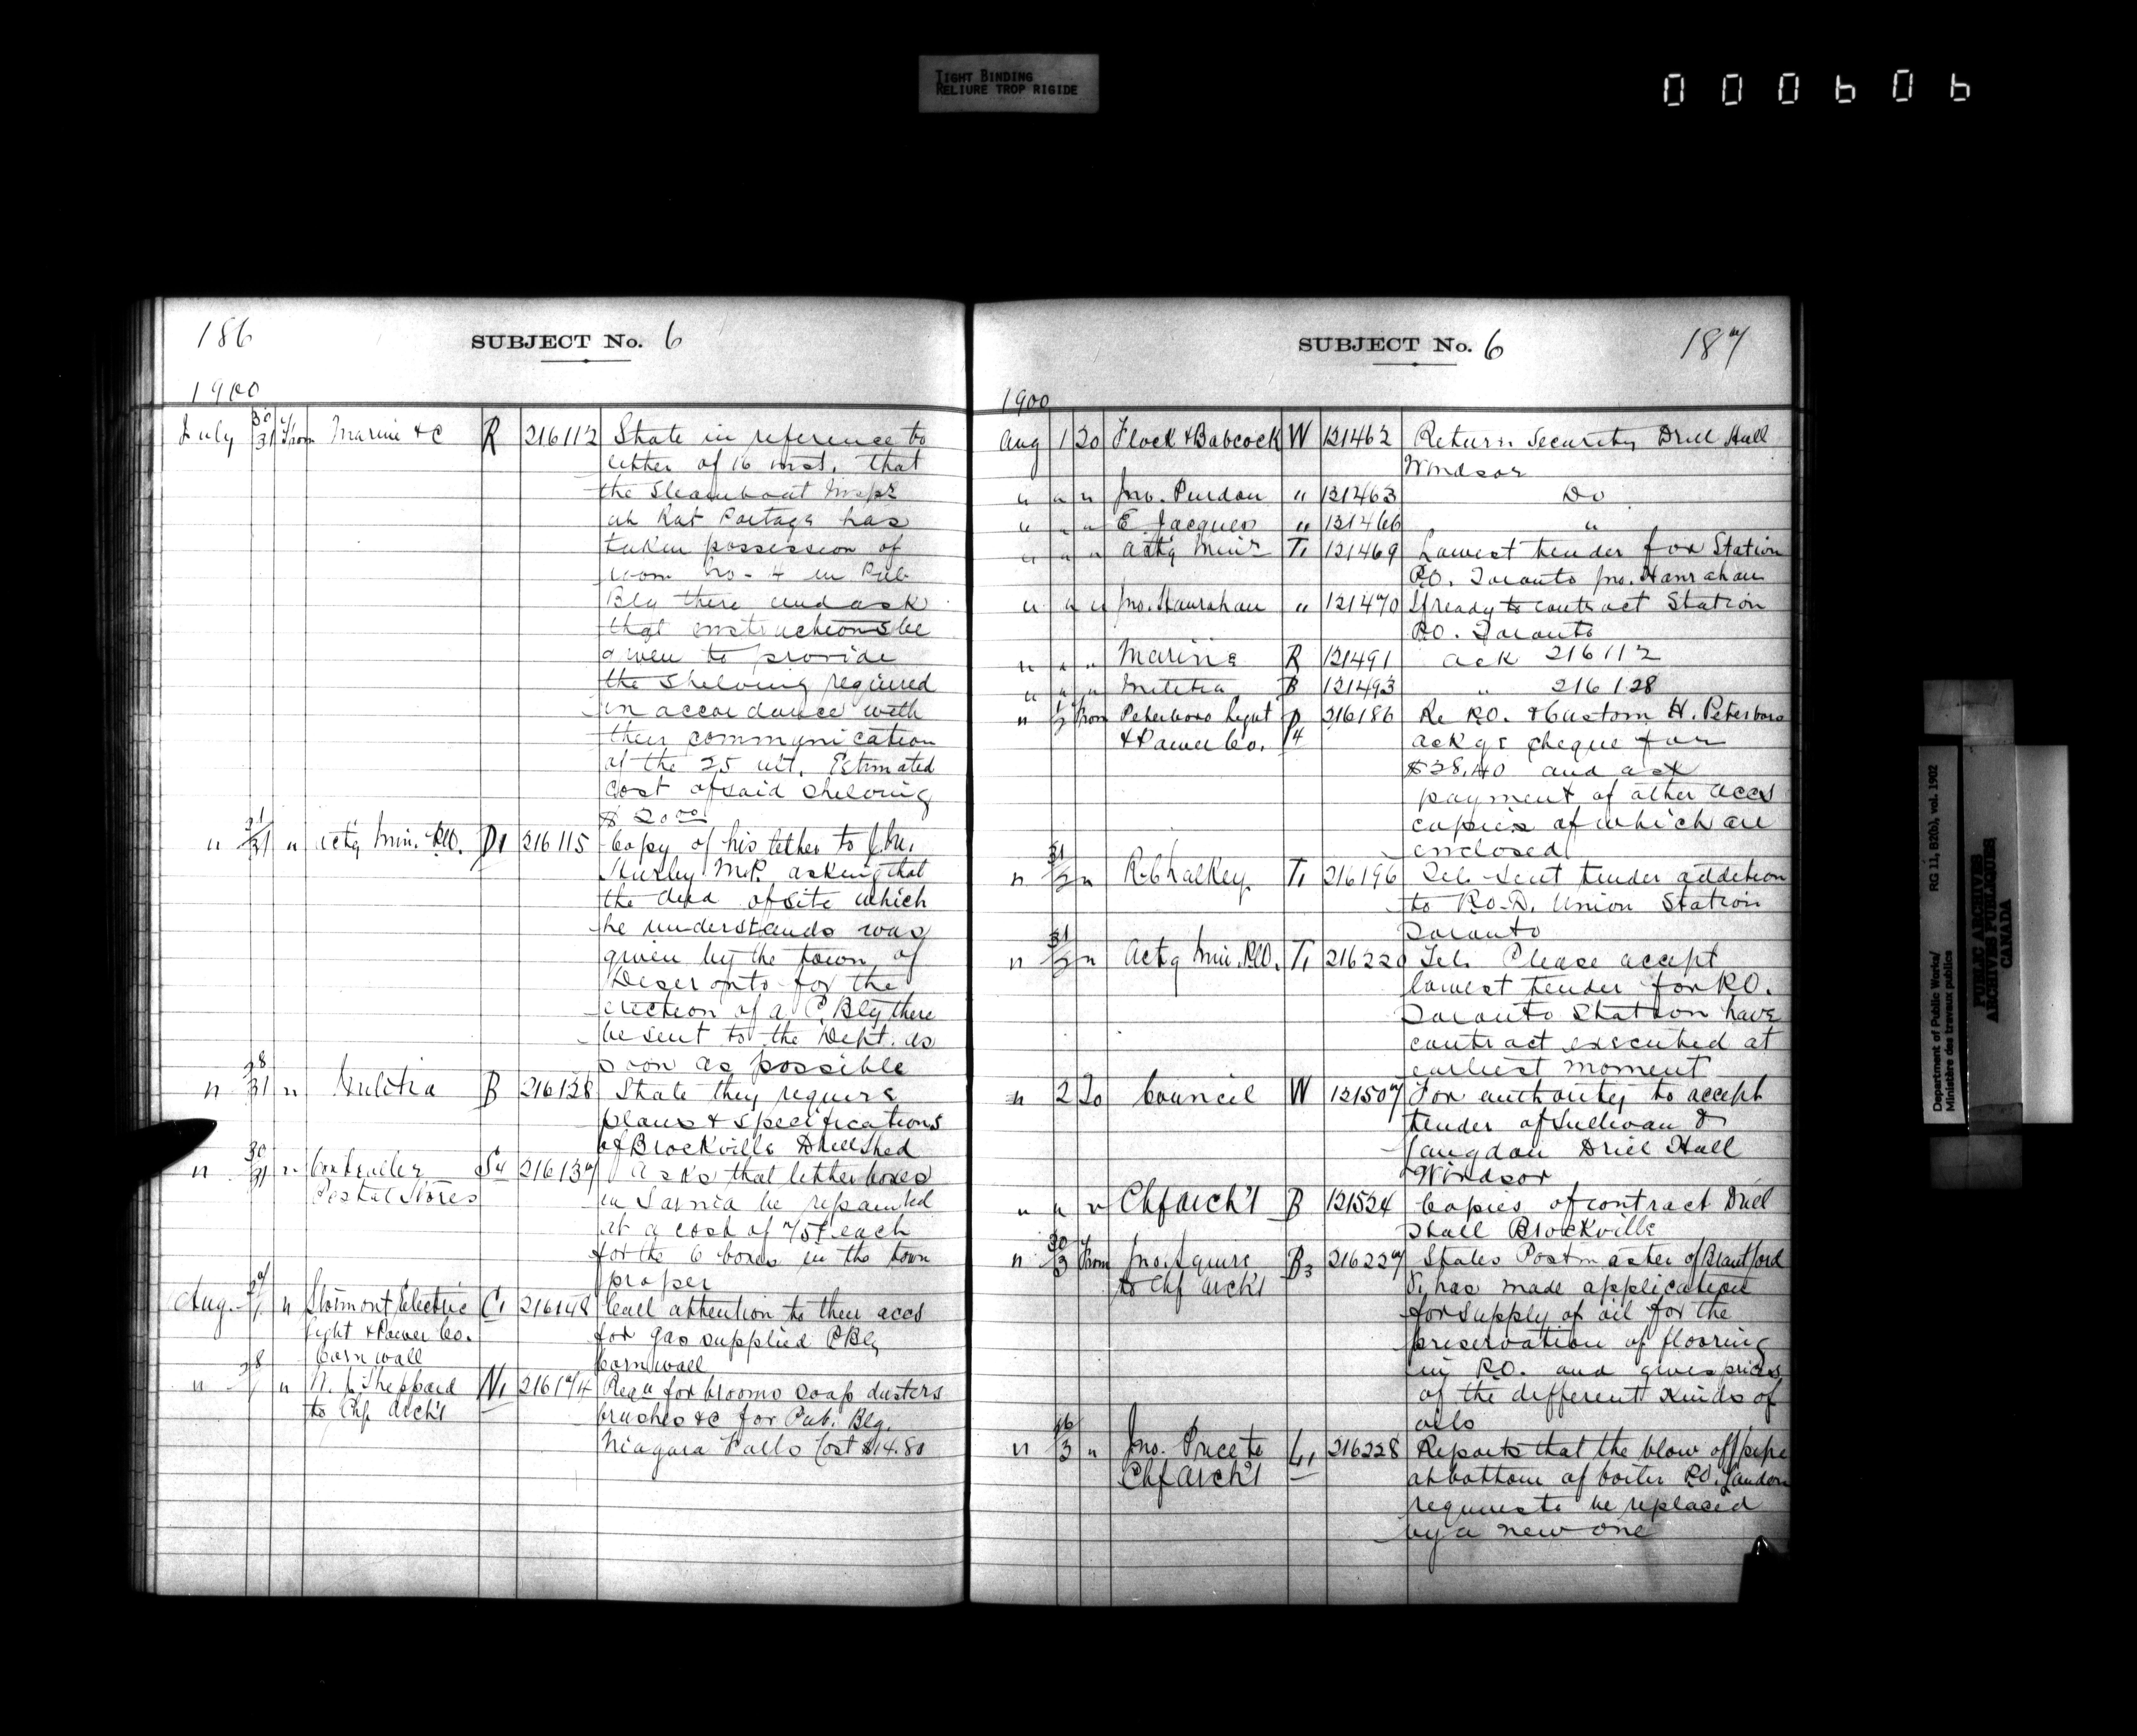 TIGHT BINDING
RELIURE TROP RIGIDE
000606
186
SUBJECT No. 6
1900
July 30/31 from Marine &c R 216112 State in reference to
letter of 16 inst. that
the Steamboat Inspr
at Rat Portage has
taken possession of
room No. 4 in Pub.
Blg there and ask
that instructions be
given to provide
the shelving required
in accordance with
their communication
of the 25 ult. Estimated
cost of said shelving
$20.00
" 31 " actg Min. P.O. D1 216115 Copy of his letter to
Hurley M.P. asking that
the deed of site which
he understands was
given by the town of
Deseronto for the
erection of a P. Blg there
be sent to the Dept. as
soon as possible
" 28/31 " Militia B 216128 State they require
plans & specifications
of Brockville Drill Shed
" 30/31 " Controller S4 216137 Asks that letter boxes
Postal Stores in Sarnia be repainted
at a cost of 75¢ each
for the 6 boxes in the town
proper
Aug. 27/1 " Stormont Electric C1 216148 Call attention to their accs
Light & Power Co. for gas supplied P Blg
Cornwall Cornwall
" 28/1 " Sheppard N1 216174 Reqn for brooms soap dusters
to Chf Arch't brushes &c for Pub. Blg.
Niagara Falls Cost $14.80
SUBJECT No. 6 187
1900
Aug 1 To Flock & Babcock W 121462 Return Security Drill Hall
Windsor
" " " Jno. Purdon " 121463 Do
" " " E Jacques " 121466 "
" " " actg Minr T1 121469 Lowest tender for Station
P.O. Toronto Jno. Hanrahan
" " " Jno. Hanrahan " 121470 If ready to contract Station
P.O. Toronto
" " " Marine R 121491 ack 216112
" " " Militia B 121493 " 216128
" 1/2 from Peterboro Light P4 216186 Re P.O. & Custom H. Peterboro
& Power Co. ackgs cheque for
$28.40 and ask
payment of other accs
copies of which are
enclosed
" 31/2 " R. Chalkey T1 216196 Tel. sent tender addition
to P.O.D. Union Station
Toronto
" 31/2 " Actg Min. P.O. T1 216220 Tel. Please accept
lowest tender for P.O.
Toronto Station have
contract executed at
earliest moment
" 2 To Council W 121507 For authority to accept
tender of Sullivan &
Langdon Drill Hall
Windsor
" " " Chf Arch't B 121524 Copies of contract Drill
Hall Brockville
" 30/3 from Jno. Squire B3 216227 States Postmaster of Brantford
to Chf Arch't has made application
for supply of oil for the
preservation of flooring
in P.O. and gives prices
of the different kinds of
oils
" 3 " Jno. Price to L1 216228 Reports that the blow off pipe
Chf Arch't at bottom of boiler P.O. London
requires to be replaced
by a new one
Department of Public Works/ RG 11, B2(b), vol. 1902
Ministère des travaux publics
PUBLIC ARCHIVES
ARCHIVES PUBLIQUES
CANADA